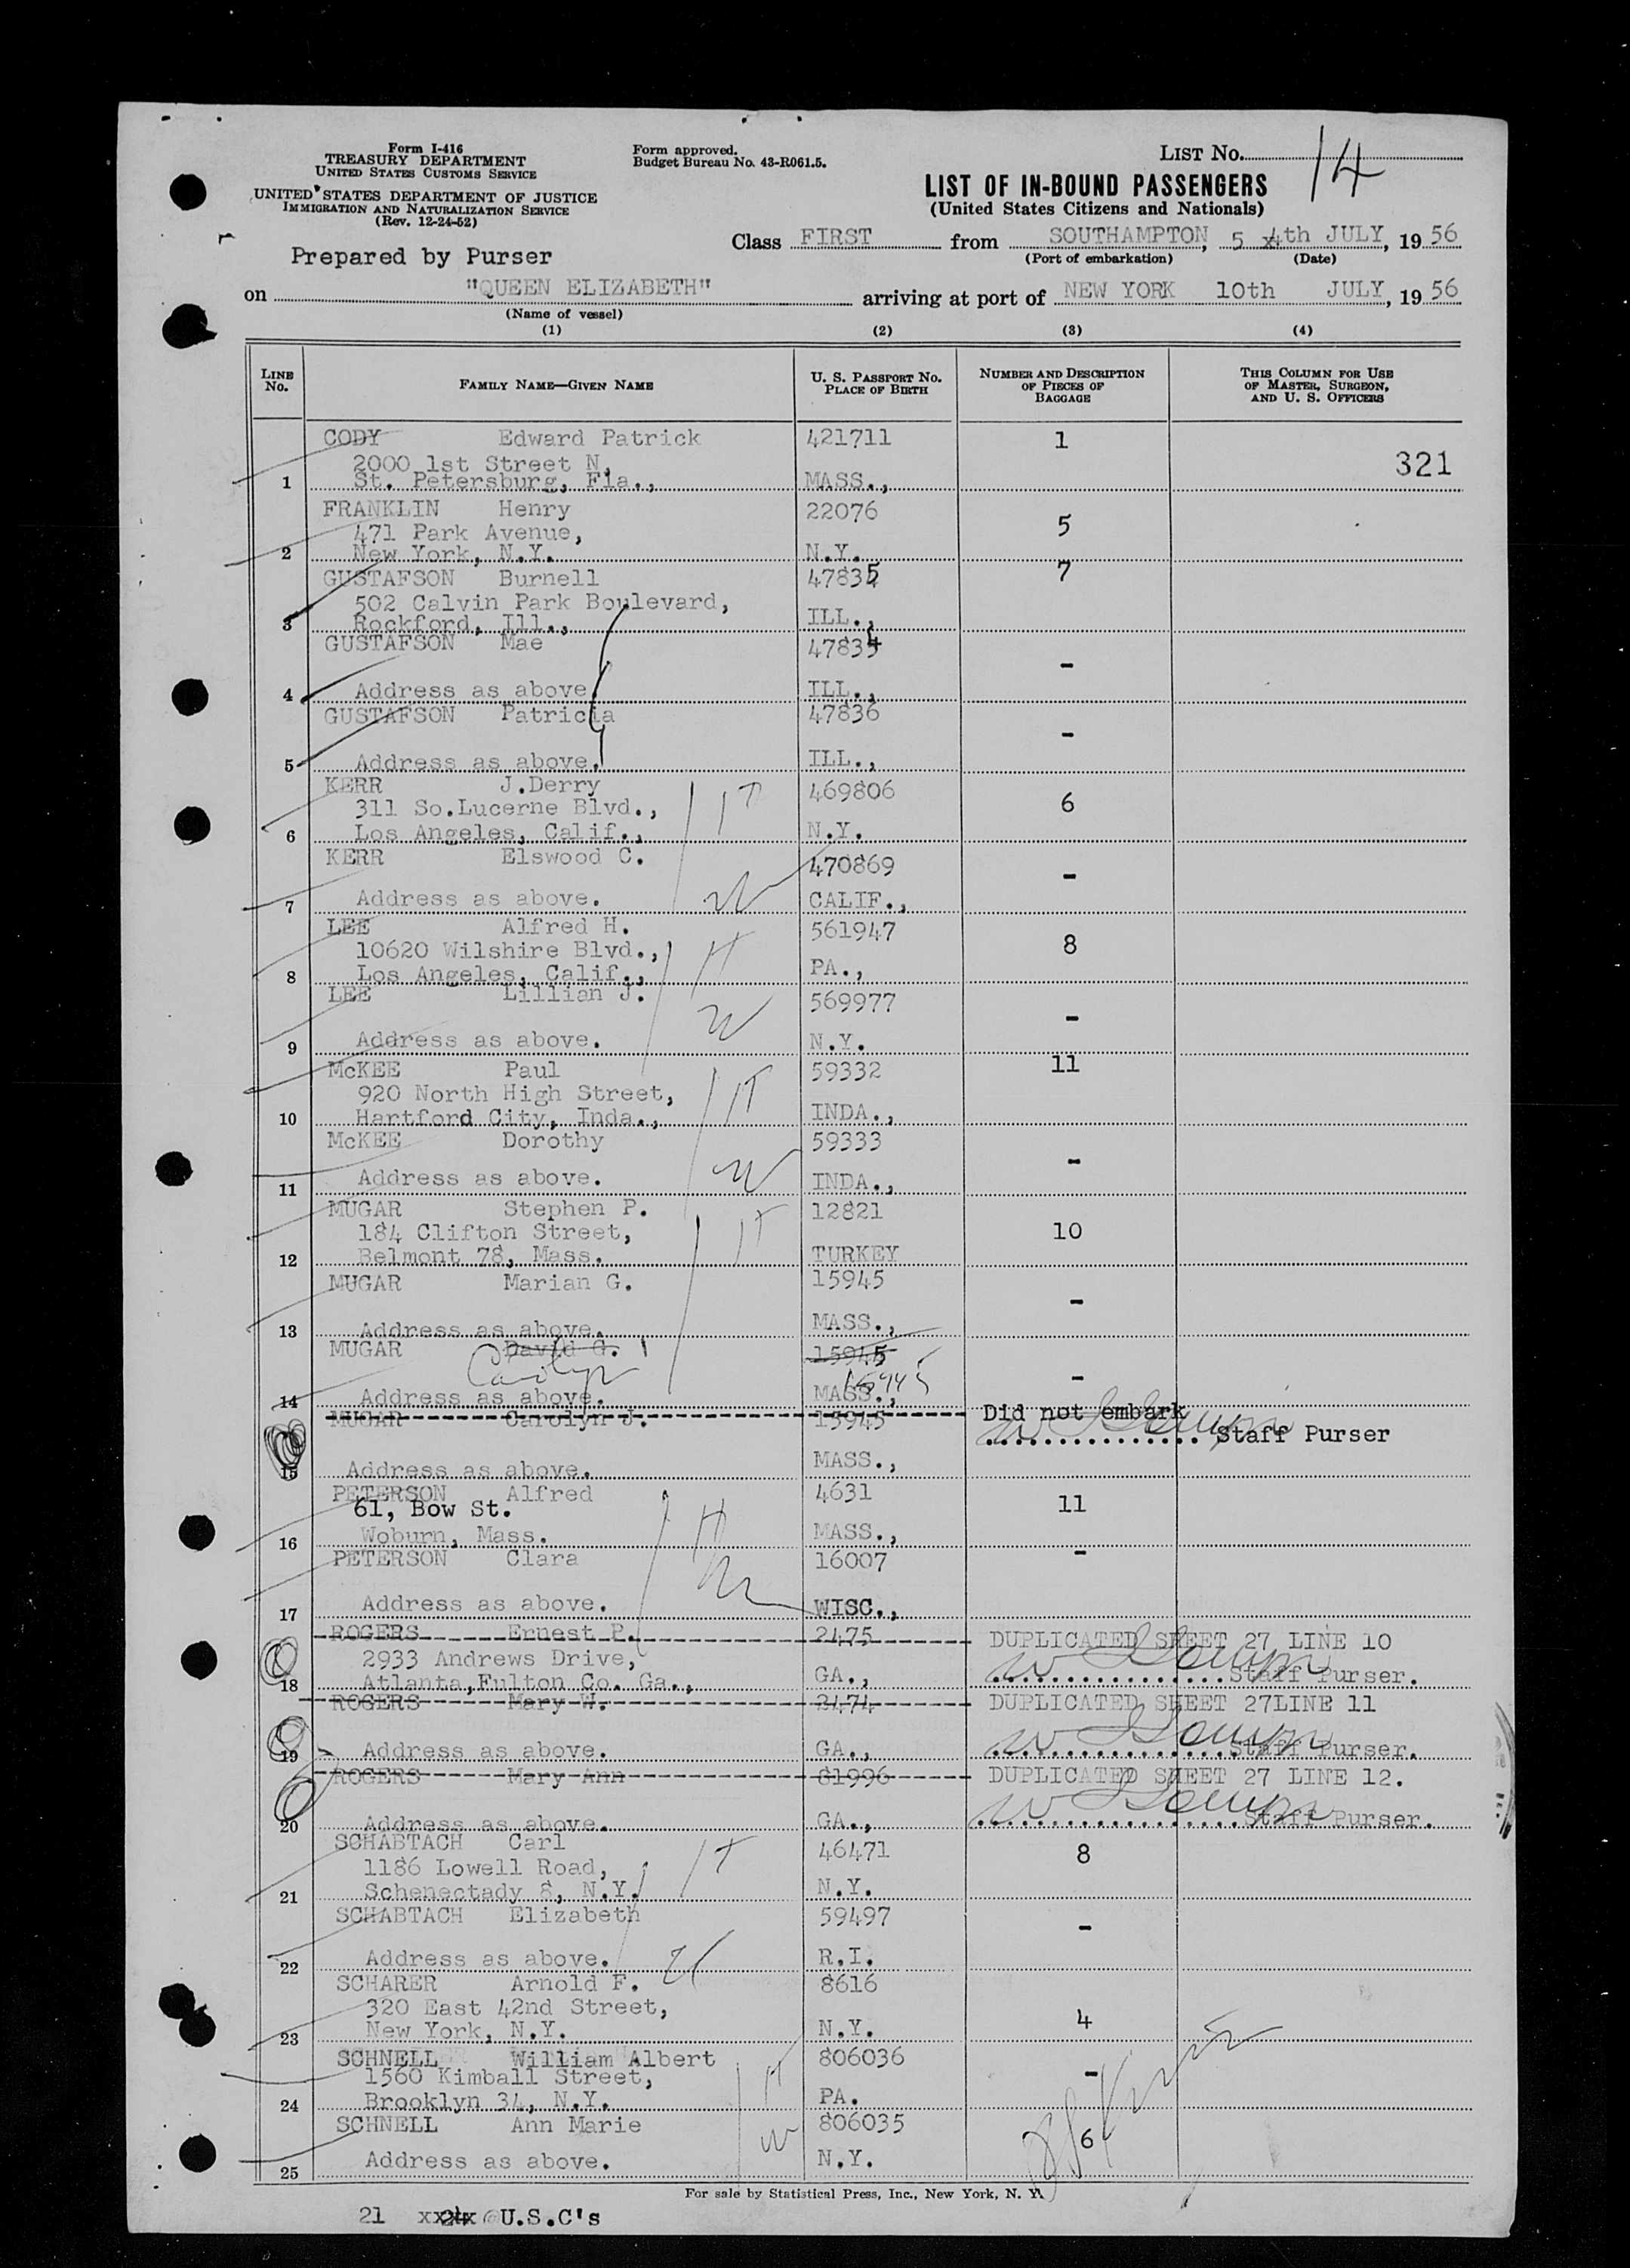 Form I-416
TREASURY DEPARTMENT
UNITED STATES CUSTOMS SERVICE
UNITED STATES DEPARTMENT OF JUSTICE
IMMIGRATION AND NATURALIZATION SERVICE
(Rev. 12-24-52)
Form approved.
Budget Bureau No. 43-R061.5.
LIST NO. 14
LIST OF IN-BOUND PASSENGERS
(United States Citizens and Nationals)
Prepared by Purser
Class FIRST from SOUTHAMPTON, 5 4th JULY, 19 56
(Port of embarkation) (Date)
on "QUEEN ELIZABETH" arriving at port of NEW YORK 10th JULY, 19 56
(Name of vessel)
(1) (2) (3) (4)
LINE NO. FAMILY NAME—GIVEN NAME U. S. PASSPORT NO. PLACE OF BIRTH NUMBER AND DESCRIPTION OF PIECES OF BAGGAGE THIS COLUMN FOR USE OF MASTER, SURGEON, AND U. S. OFFICERS
CODY Edward Patrick 421711 1
2000 1st Street N, 321
1 St. Petersburg, Fla., MASS.,
FRANKLIN Henry 22076
471 Park Avenue, 5
2 New York, N.Y. N.Y.
GUSTAFSON Burnell 47835 7
502 Calvin Park Boulevard,
3 Rockford, Ill., ILL.,
GUSTAFSON Mae 47834
-
4 Address as above. ILL.,
GUSTAFSON Patricia 47836
-
5 Address as above. ILL.,
KERR J.Derry 469806
311 So.Lucerne Blvd., 6 H
6 Los Angeles, Calif., N.Y.
KERR Elswood C. 470869
-
7 Address as above. W CALIF.,
LEE Alfred H. 561947
10620 Wilshire Blvd., H 8
8 Los Angeles, Calif., PA.,
LEE Lillian J. 569977
W -
9 Address as above. N.Y.
McKEE Paul 59332 11
920 North High Street, H
10 Hartford City, Inda., INDA.,
McKEE Dorothy 59333
-
11 Address as above. W INDA.,
MUGAR Stephen P. 12821
184 Clifton Street, H 10
12 Belmont 78, Mass. TURKEY
MUGAR Marian G. 15945
-
13 Address as above. MASS.,
MUGAR David G. 15945
Carolyn 15945 -
14 Address as above. MASS.,
MUGAR Carolyn J. 15945 Did not embark
Staff Purser
15 Address as above. MASS.,
PETERSON Alfred 4631
61, Bow St. H 11
16 Woburn, Mass. MASS.,
PETERSON Clara 16007 -
W
17 Address as above. WISC.,
ROGERS Ernest P. 2475 DUPLICATED SHEET 27 LINE 10
2933 Andrews Drive, Staff Purser.
18 Atlanta,Fulton Co. Ga., GA.,
ROGERS Mary W. 2474 DUPLICATED SHEET 27LINE 11
19 Address as above. GA., Staff Purser.
ROGERS Mary Ann 81996 DUPLICATED SHEET 27 LINE 12.
20 Address as above. GA., Staff Purser.
SCHABTACH Carl 46471 8
1186 Lowell Road, H
21 Schenectady 8, N.Y. N.Y.
SCHABTACH Elizabeth 59497
-
22 Address as above. W R.I.
SCHARER Arnold F. 8616
320 East 42nd Street, 4
23 New York, N.Y. N.Y.
SCHNELL William Albert 806036
1560 Kimball Street, H -
24 Brooklyn 34, N.Y. PA.
SCHNELL Ann Marie 806035
W 6
25 Address as above. N.Y.
For sale by Statistical Press, Inc., New York, N. Y.
21 xx24x U.S.C's